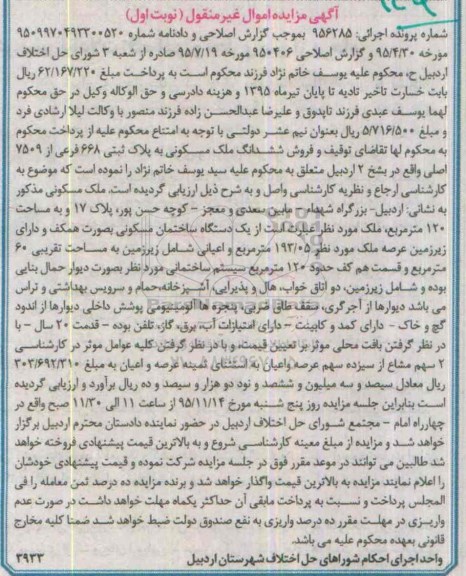 آگهی مزایده اموال غیر منقول ( نوبت اول)
شماره پرونده اجرائی: ۹۵۶۲۸۵ بموجب گزارش اصلاحی و دادنامه شماره ۹۵۰۹۹۷۰۴۹۳۳۰۰۵۲۰
مورخه ۹۵/۴/۳۰ و گزارش اصلاحی ۹۵۰۴۰۶ مورخه ۹۵/۷/۱۹ صادره از شعبه ۳ شورای حل اختلاف
اردبیل ح، محکوم علیه یوسف خاتم نژاد فرزند محکوم است به پرداخت مبلغ ۶۲/۱۶۷/۲۲۰ ریال
بابت خسارت تاخیر تادیه تا پایان تیرماه ۱۳۹۵ و هزینه دادرسی و حق الوکاله وکیل در حق محکوم
لهما یوسف عبدی فرزند تاپدوق و علیرضا عبدالحسن زاده فرزند منصور با وکالت لیلا ارشادی فرد
و مبلغ ۵/۷۱۶/۵۰۰ ریال بعنوان نیم عشر دولتی با توجه به امتناع محکوم علیه از پرداخت محکوم
به محکوم لها تقاضای توقیف و فروش ششدانگ ملک مسکونی به پلاک ثبتی ۶۶۸ فرعی از ۷۵۰۹
اصلی واقع در بخش ۲ اردبیل متعلق به محکوم علیه سید یوسف خاتم نژاد را نموده است که موضوع به
کارشناسی ارجاع و نظریه کارشناسی واصل و به شرح ذیل ارزیابی گردیده است. ملک مسکونی مذکور
به نشانی: اردبیل- بزرگراه شهدا- مابین سعدی و معجز - کوچه حسن پور، پلاک ۱۷ و به مساحت
۱۲۰ مترمربع، ملک مورد نظر عبارت است از یک دستگاه ساختمان مسکونی بصورت همکف و دارای
زیرزمین عرصه ملک مورد نظر ۱۹۳/۰۵ مترمربع و اعیانی شامل زیرزمین به مساحت تقریبی ۶۰
مترمربع و قسمت هم کف حدود ۱۲۰ مترمربع سیستم ساختمانی مورد نظر بصورت دیوار حمال بنایی
بوده و شامل زیرزمین، دو اتاق خواب، هال و پذیرایی، آشپزخانه، حمام و سرویس بهداشتی و تراس
می باشد دیوارها از آجرگری، سقف طاق ضربی، پنجره ها آلومینیومی پوشش داخلی دیوارها از اندود
گچ و خاک - دارای کمد و کابینت - دارای امتیازات آب، برق، گاز، تلفن بوده - قدمت ۲۰ سال - با
در نظر گرفتن بافت محلی موثر بر تعیین قیمت، و با در نظر گرفتن کلیه عوامل موثر در کارشناسی
۲ سهم مشاع از سیزده سهم عرصه واعیان به استثنای ثمینه عرصه و اعیان به مبلغ ۳۰۳/۶۹۲/۳۱۰
ریال معادل سیصد و سه میلیون و ششصد و نود دو هزار و سیصد و ده ریال برآورد و ارزیابی گردیده
است بنابراین جلسه مزایده روز پنج شنبه مورخ ۹۵/۱۱/۱۴ از ساعت ۱۱ الی ۱۱/۳۰ صبح واقع در
چهارراه امام - مجتمع شورای حل اختلاف اردبیل در حضور نماینده دادستان محترم اردبیل برگزار
خواهد شد و مزایده از مبلغ معینه کارشناسی شروع و به بالاترین قیمت پیشنهادی فروخته خواهد
شد طالبین می توانند در موعد مقرر فوق در جلسه مزایده شرکت نموده و قیمت پیشنهادی خودشان
را اعلام نمایند مزایده به بالاترین قیمت واگذار خواهد شد و برنده مزایده ده درصد ثمن معامله را فی
المجلس پرداخت و نسبت به پرداخت مابقی آن حداکثر یکماه مهلت خواهد داشت در صورت عدم
واریزی در مهلت مقرر ده درصد واریزی به نفع صندوق دولت ضبط خواهد شد ضمنا کلیه مخارج
قانونی بعهده محکوم علیه می باشد.
واحد اجرای احکام شوراهای حل اختلاف شهرستان اردبیل ۳۹۳۳